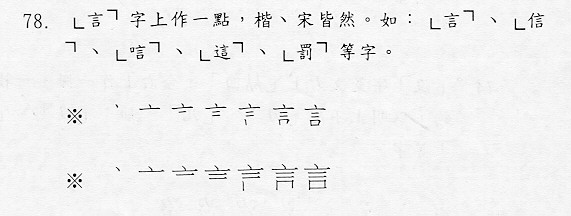 78. ﹂言﹁字上作一點，楷、宋皆然。如：﹂言﹁、﹂信
﹁、﹂唁﹁、﹂這﹁、﹂罰﹁等字。
※ 丶 亠 言 言
※ 丶 亠 言 言